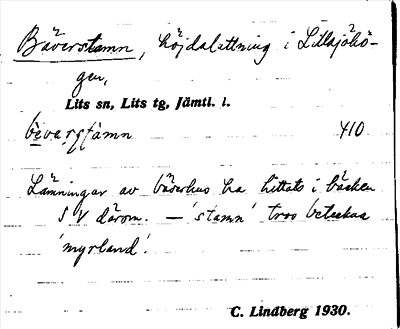 Bäverstamn, höjdalettning i Lillsjöhö-
gen,
Lits sn, Lits tg, Jämtl. l.
bèvarstàmn 410
Lämningar av bäverhus ha hittats i bäcken
S V därom. – 'stamn' tros beteckna
'myrland'.
C. Lindberg 1930.